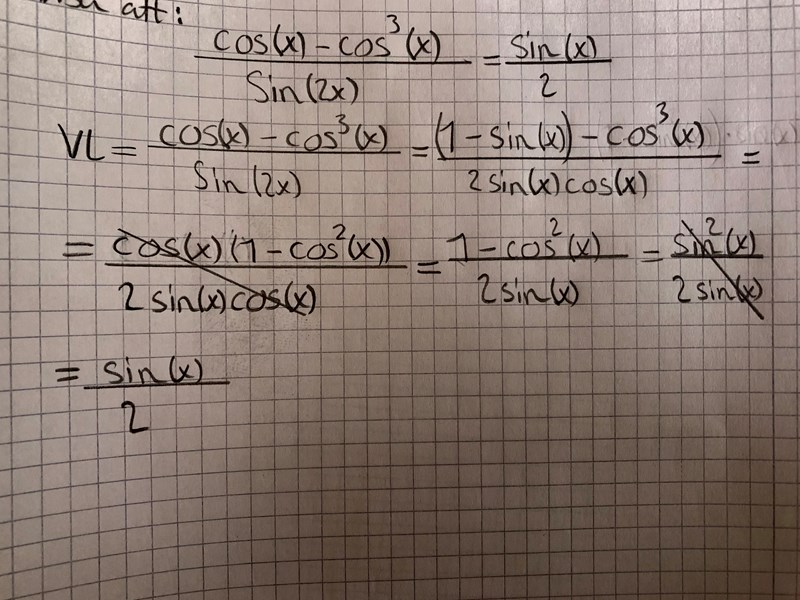 att:
cos(x) - cos³(x) / Sin(2x) = Sin(x) / 2
VL = cos(x) - cos³(x) / Sin(2x) = (1 - sin(x)) - cos³(x) / 2 sin(x) cos(x) =
= cos(x) (1 - cos²(x)) / 2 sin(x) cos(x) = 1 - cos²(x) / 2 sin(x) = sin²(x) / 2 sin(x)
= sin(x) / 2